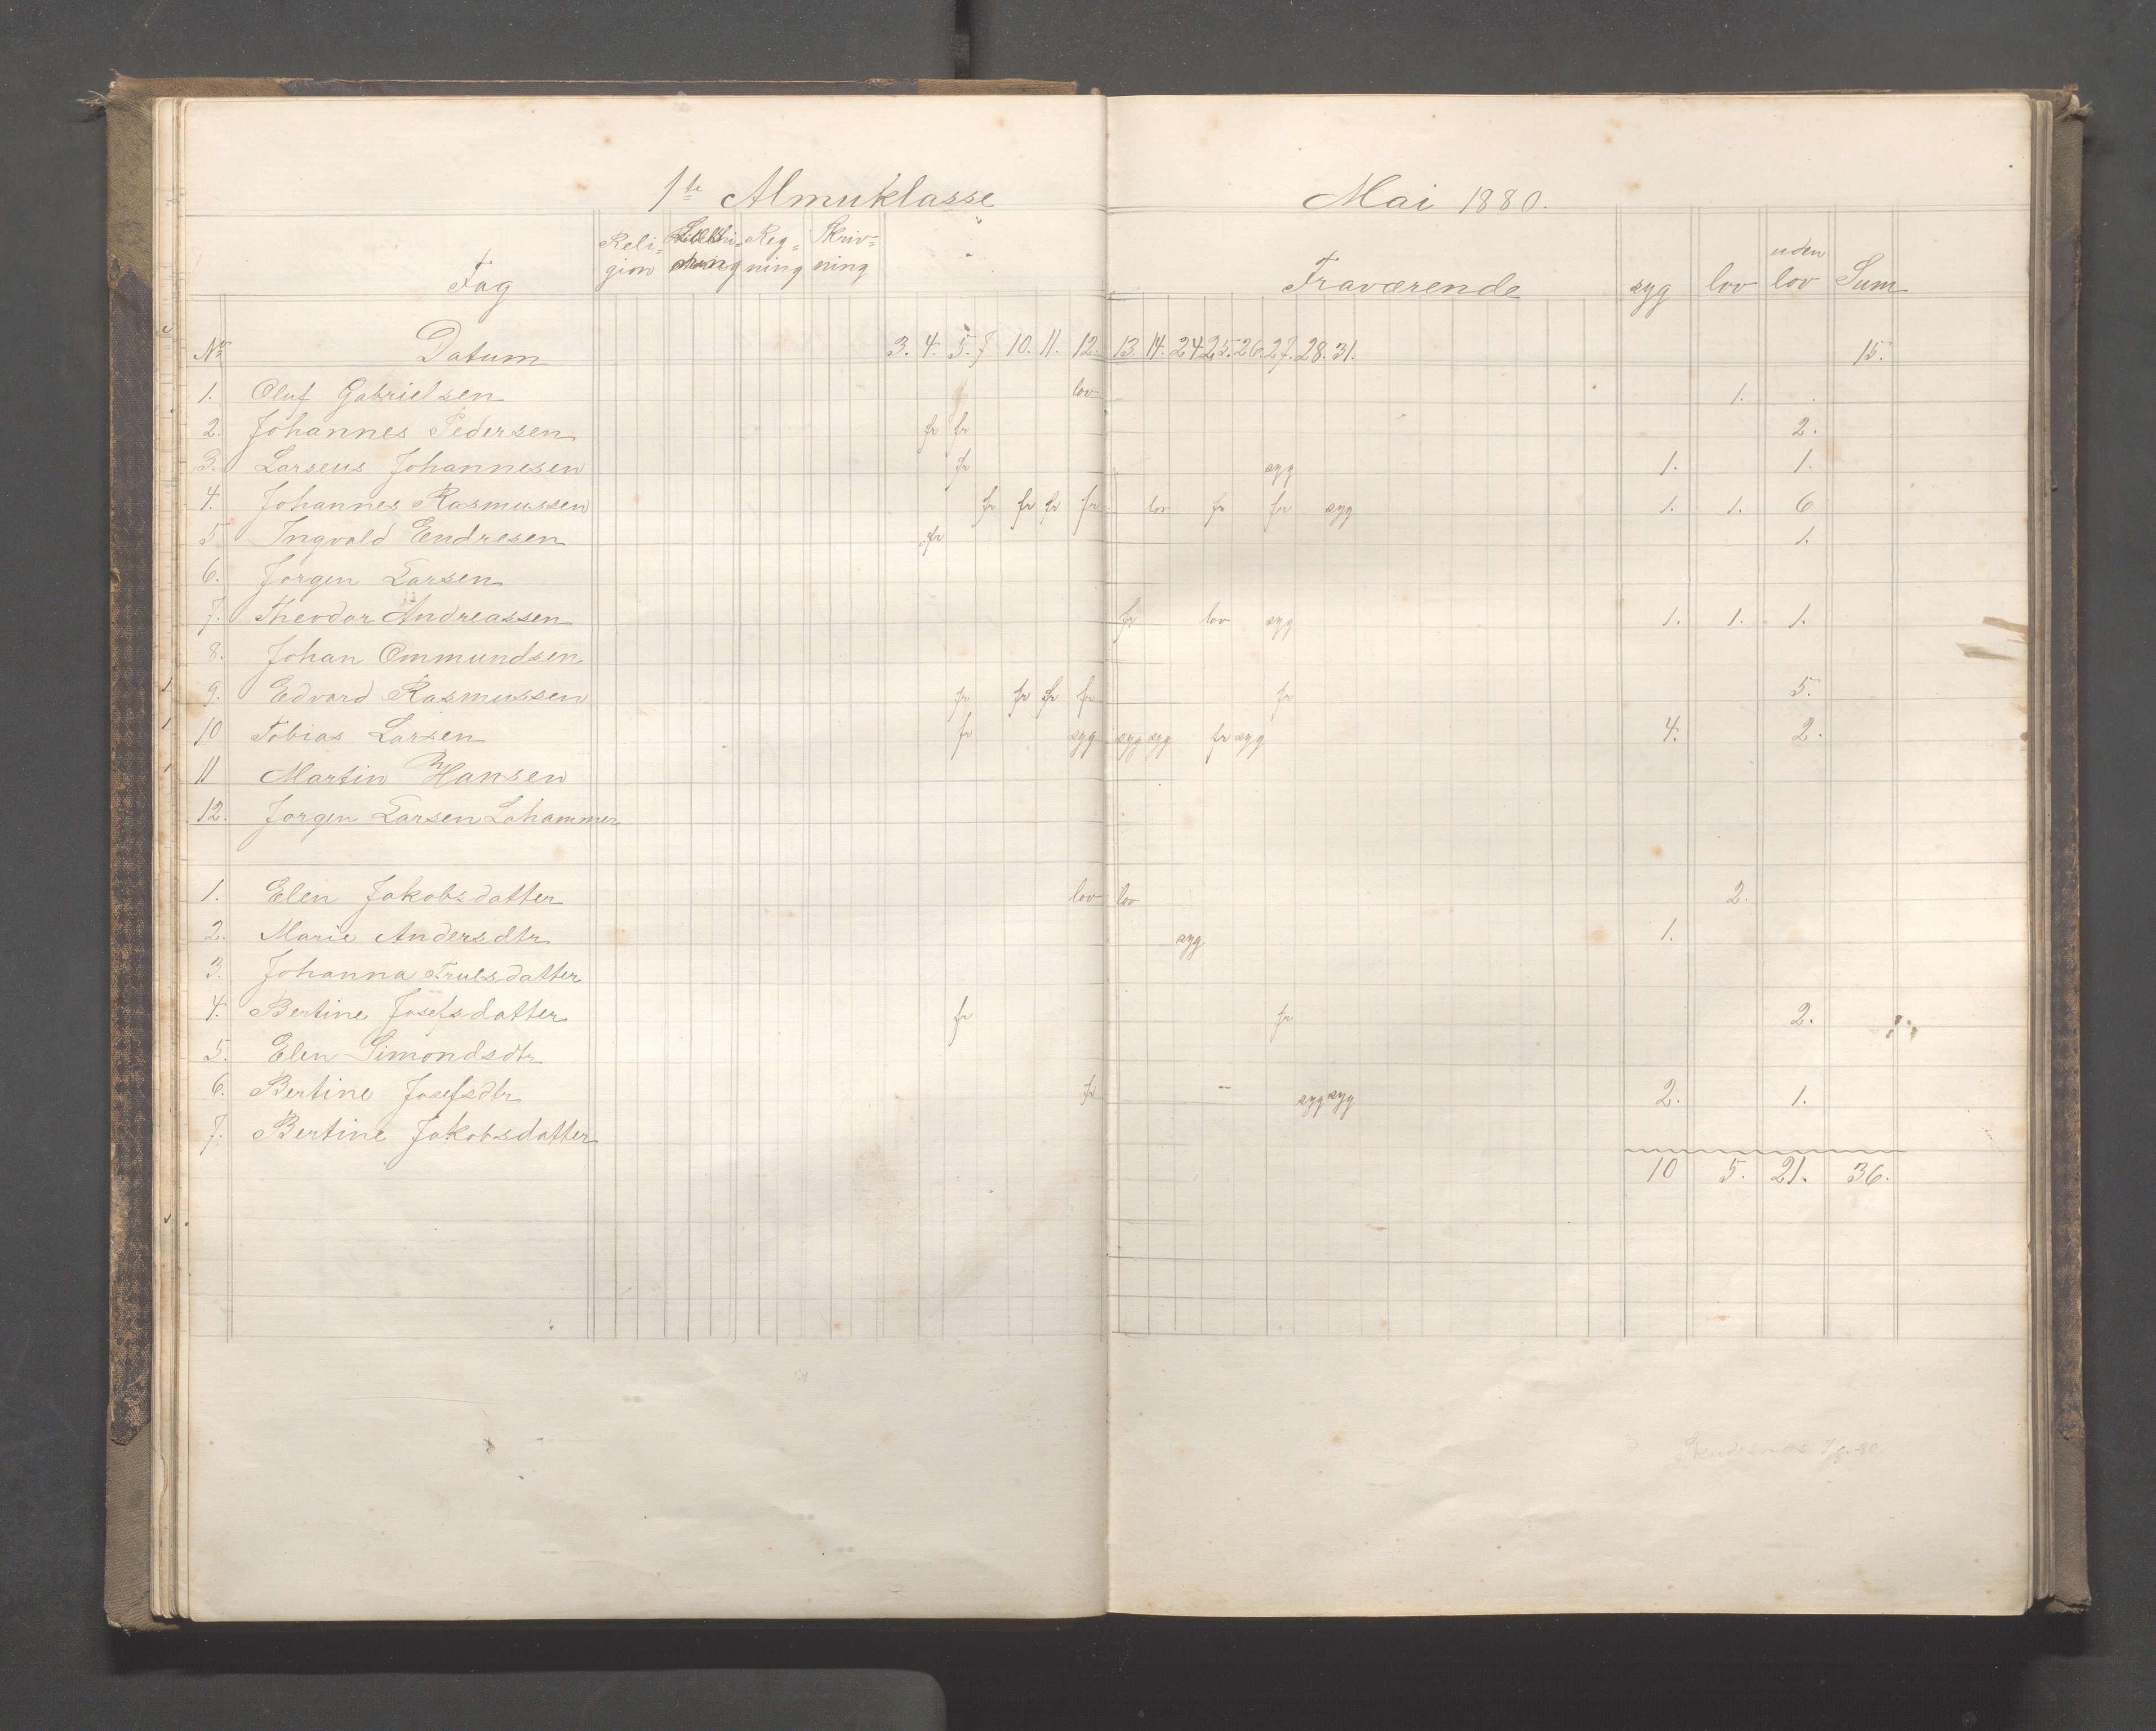 1te Almuklasse Mai 1880.
Reli- Reg- Skriv-
gion ning ning uden
Fag Fraværende syg lov lov Sum
No Datum 3. 4. 5. 7 10. 11. 12. 13. 14. 24 25. 26. 27. 28. 31. 15.
1. Oluf Gabrielsen lov 1.
2. Johannes Pedersen fr fr 2.
3. Larseus Johannesen fr syg 1. 1.
4. Johannes Rasmussen fr fr fr fr lov fr fr syg 1. 1. 6
5 Ingvald Endresen fr 1.
6. Jorgen Larsen
7. Theodor Andreassen fr lov syg 1. 1. 1.
8. Johan Ommundsen
1 9. Edvard Rasmussen fr fr fr fr fr 5.
1 10 Tobias Larsen fr syg syg syg fr syg 4. 2.
1 11 Martin Hansen
12. Jorgen Larsen Lahammer
1. Elen Jakobsdatter lov lov 2.
2. Marie Andersdtr syg 1.
3. Johanna Trulsdatter
4. Bertine Josefsdatter fr fr 2.
5. Elen Simondsdtr
6. Bertine Josefsdtr fr syg syg 2. 1.
7. Bertine Jakobsdatter
10 5. 21. 36.
Skudesnæs